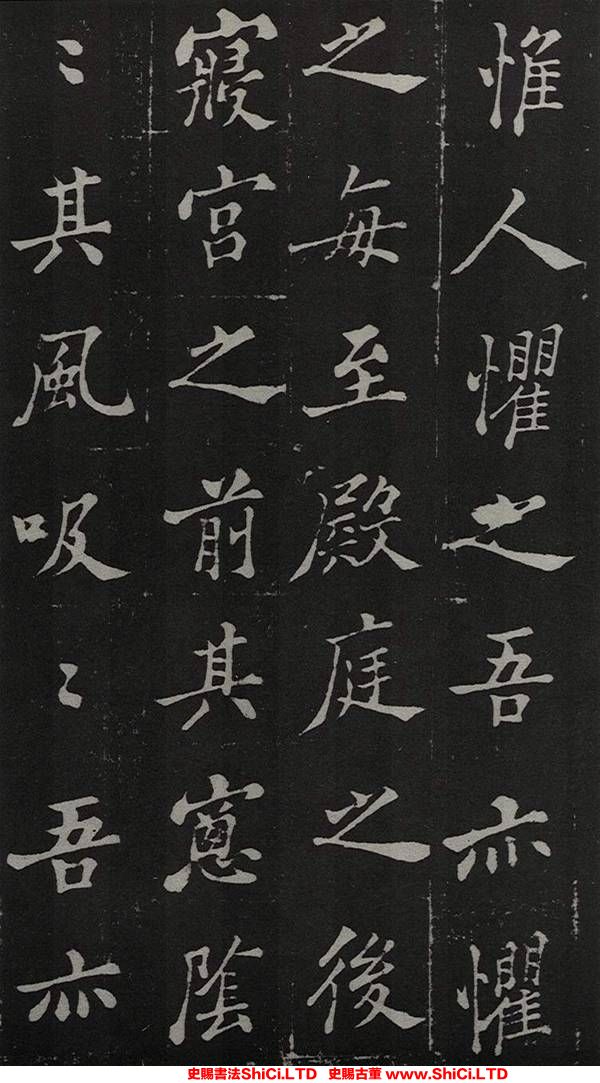 惟人懼之吾亦懼
之每至殿庭之後
寢宮之前其窻陰
〻其風吸〻吾亦
史賜書法ShiCi.LTD 史賜古董 www.ShiCi.LTD